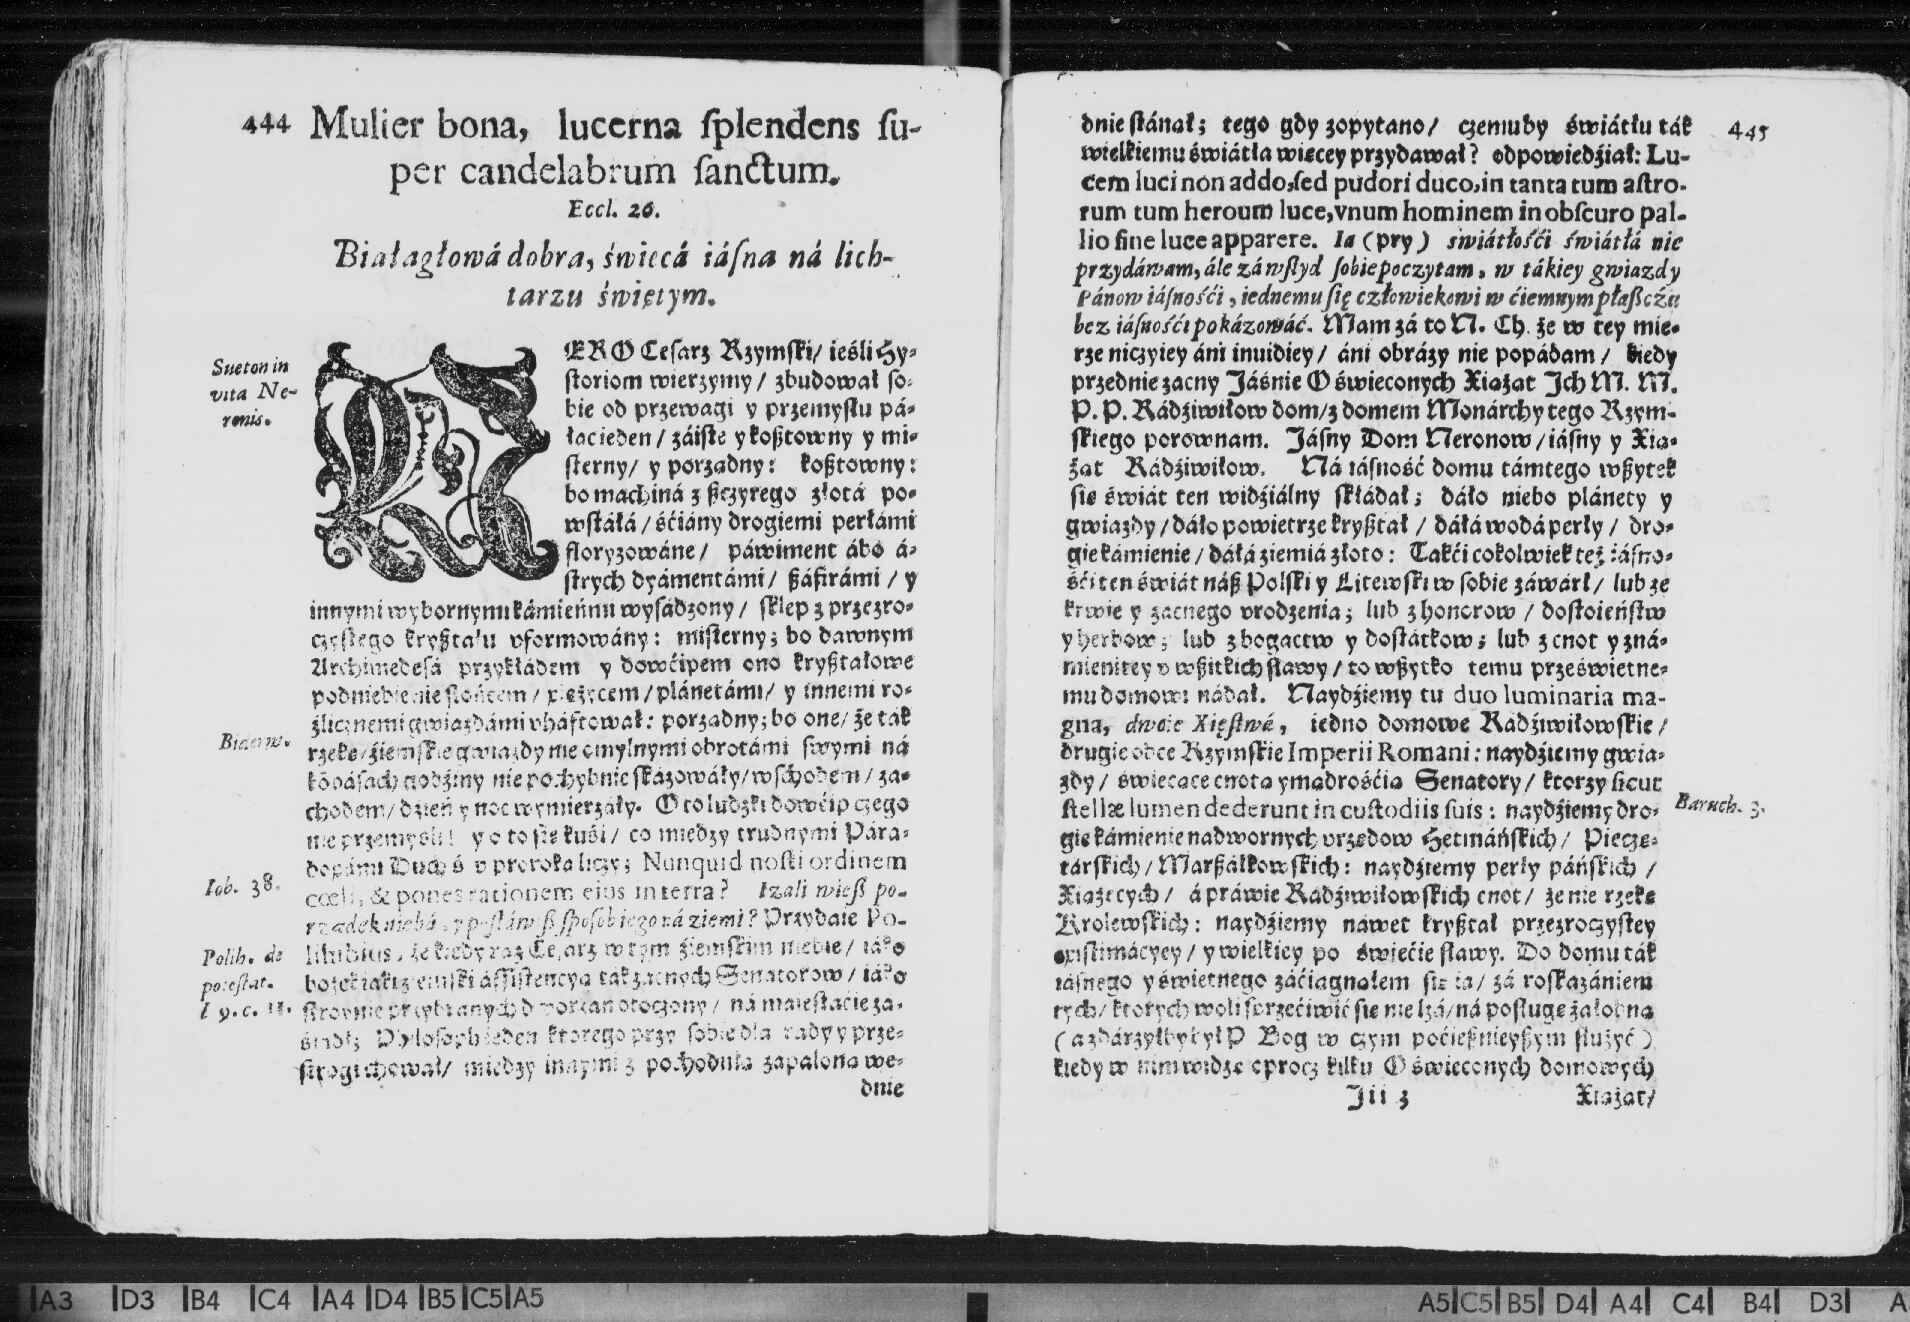 444 Mulier bona, lucerna ſplendens ſu-
per candelabrum ſanctum.
Eccl. 26.
Białagłowá dobra, świecá iáſna ná lich-
tarzu świętym.
Sueton in
vita Ne-
ronis.
NERO Ceſarz Rzymſki/ ieśli Hy-
ſtoriom wierzymy / zbudował ſo-
bie od przewagi y przemyſłu pá-
łac ieden / záiſte y koßtowny y mi-
ſterny/ y porządny: koßtowny:
bo machiná z ßczyrego złotá po-
wſtáłá / śćiány drogiemi perłámi
floryzowáne / páwiment ábo á-
ſtrych dyámentámi / ßáfirámi / y
innymi wybornymi kámieńmi wyſádzony / ſklep z przezro-
czyſtego kryßtału vformowány: miſterny; bo dawnym
Archimedeſá przykłádem y dowćipem ono kryßtałowe
podniebienie słońcem / mieſięcem / plánetámi/ y innemi ro-
źlicznemi gwiazdámi vháftował: porządny; bo one/ że ták
Biderm.
rzekę/ źiemſkie gwiazdy nie omylnymi obrotámi ſwymi ná
kōpáſach godźiny nie pochybnie ſkázowáły/ wſchodem / za-
chodem/ dźień y noc wymierzáły. O to ludzki dowćip czego
nie przemyśli! y o to się kuśi/ co między trudnymi Pára-
doxámi Duch ś v proroka liczy; Nunquid nosti ordinem
Iob. 38.
cœli, & pones rationem eius in terra? Izali wieß po-
rządek niebá, y poſtáwiß ſpoſob iego ná ziemi? Przydaie Po-
Polih. de
poteſtat.
l 9. c. 11.
lihibius, że kiedy raz Ceſarz w tym źiemſkim niebie/ iáko
bożek iáki ziemſki áſſiſtencyą ták zacnych Senatorow / iáko
ſtroynie przybranych dworzan otoczony / ná máieſtaćie za-
śiadł; Philoſoph ieden ktorego przy ſobie dla rady y prze-
ſtrogi chował/ między innymi z pochodnią zapaloną we-
dnie
445
dnie ſtánął; tego gdy zopytano/ czemuby świátłu ták
wielkiemu świátła więcey przydawał? odpowiedźiał: Lu-
cem luci non addo, ſed pudori duco, in tanta tum aſtro-
rum tum heroum luce, vnum hominem in obſcuro pal-
lio ſine luce apparere. Ia (pry) świátłośći świátłá nie
przydáwam, ále zá wſtyd ſobie poczytam, w tákiey gwiazdy
Pánow iáſnośći, iednemu się człowiekowi w ćiemnym płaßczu
bez iáſnośći pokázowáć. Mam zá to N. Ch. że w tey mie-
rze niczyiey áni inuidiey / áni obrázy nie popádam / kiedy
przednie zacny Jáśnie Oświeconych Xiążąt Jch M. M.
P. P. Rádźiwiłow dom/ z domem Monárchy tego Rzym-
ſkiego porownam. Jáſny Dom Neronow / iáſny y Xią-
żąt Rádźiwiłow. Ná iáſność domu támtego wßytek
się świát ten widźiálny ſkłádał; dáło niebo plánety y
gwiazdy / dáło powietrze kryßtał / dáłá wodá perły / dro-
gie kámienie / dáłá ziemiá złoto: Takći cokolwiek też iáſno-
śći ten świát náß Polſki y Litewſki w ſobie záwárł / lub ze
krwie y zacnego vrodzenia; lub z honorow / doſtoieńſtw
y herbow; lub z bogactw y doſtátkow; lub z cnot y zná-
mienitey v wßitkich ſławy / to wßytko temu prześwietne-
mu domowi nádał. Naydźiemy tu duo luminaria ma-
gna, dwoie Xięſtwá, iedno domowe Rádźiwiłowſkie /
drugie obce Rzymſkie Imperii Romani: naydźiemy gwia-
zdy / świecące cnotą y mądrośćią Senatory / ktorzy ſicut
ſtellæ lumen dederunt in cuſtodiis ſuis: naydźiemy dro-
Baruch. 3.
gie kámienie nadwornych vrzędow Hetmáńſkich / Pieczę-
tárſkich / Marßáłkowſkich: naydźiemy perły páńſkich /
Xiążęcych / á práwie Rádźiwiłowſkich cnot / że nie rzekę
Krolewſkich: naydźiemy náwet kryßtał przezroczyſtey
exiſtimácyey / y wielkiey po świećie ſławy. Do domu ták
iáſnego y świetnego záćiągnąłem się ia / zá roſkazániem
tych / ktorych woli ſprzećiwić się nie lzá / ná poſługę żałobną
(a zdárzyłby był P Bog w czym poćießnieyßym ſłużyć)
kiedy w nim widzę oprocz kilku Oświeconych domowych
Jii 3 Xiążąt/